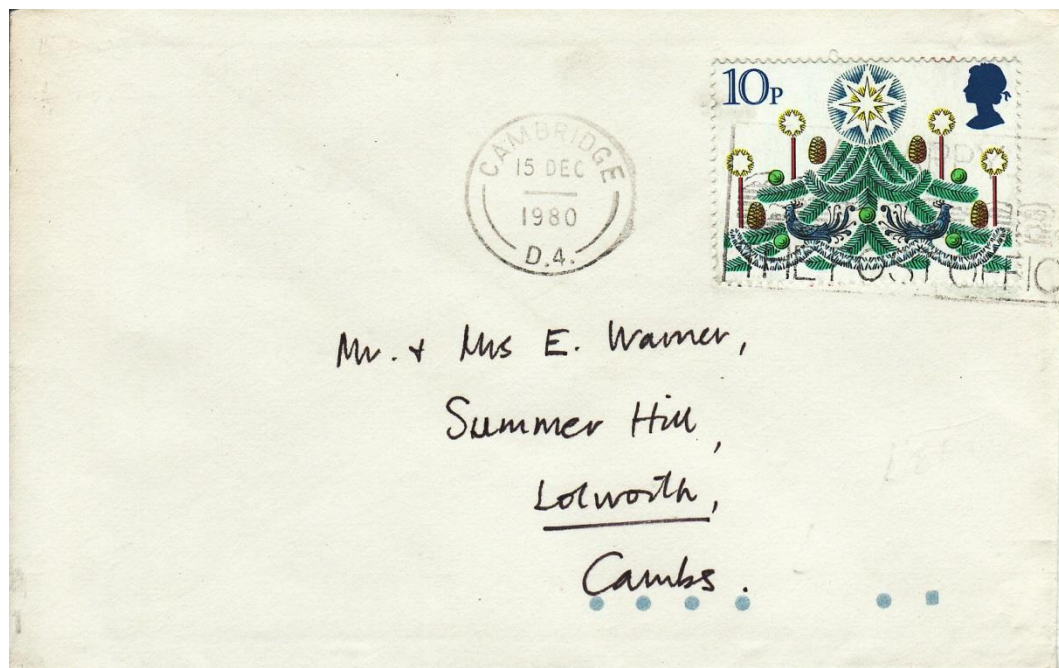 10P
CAMBRIDGE
15 DEC
1980
D.4.
THE POST OFFIC
Mr. + Mrs E. Warner,
Summer Hill,
Lolworth,
Cambs.